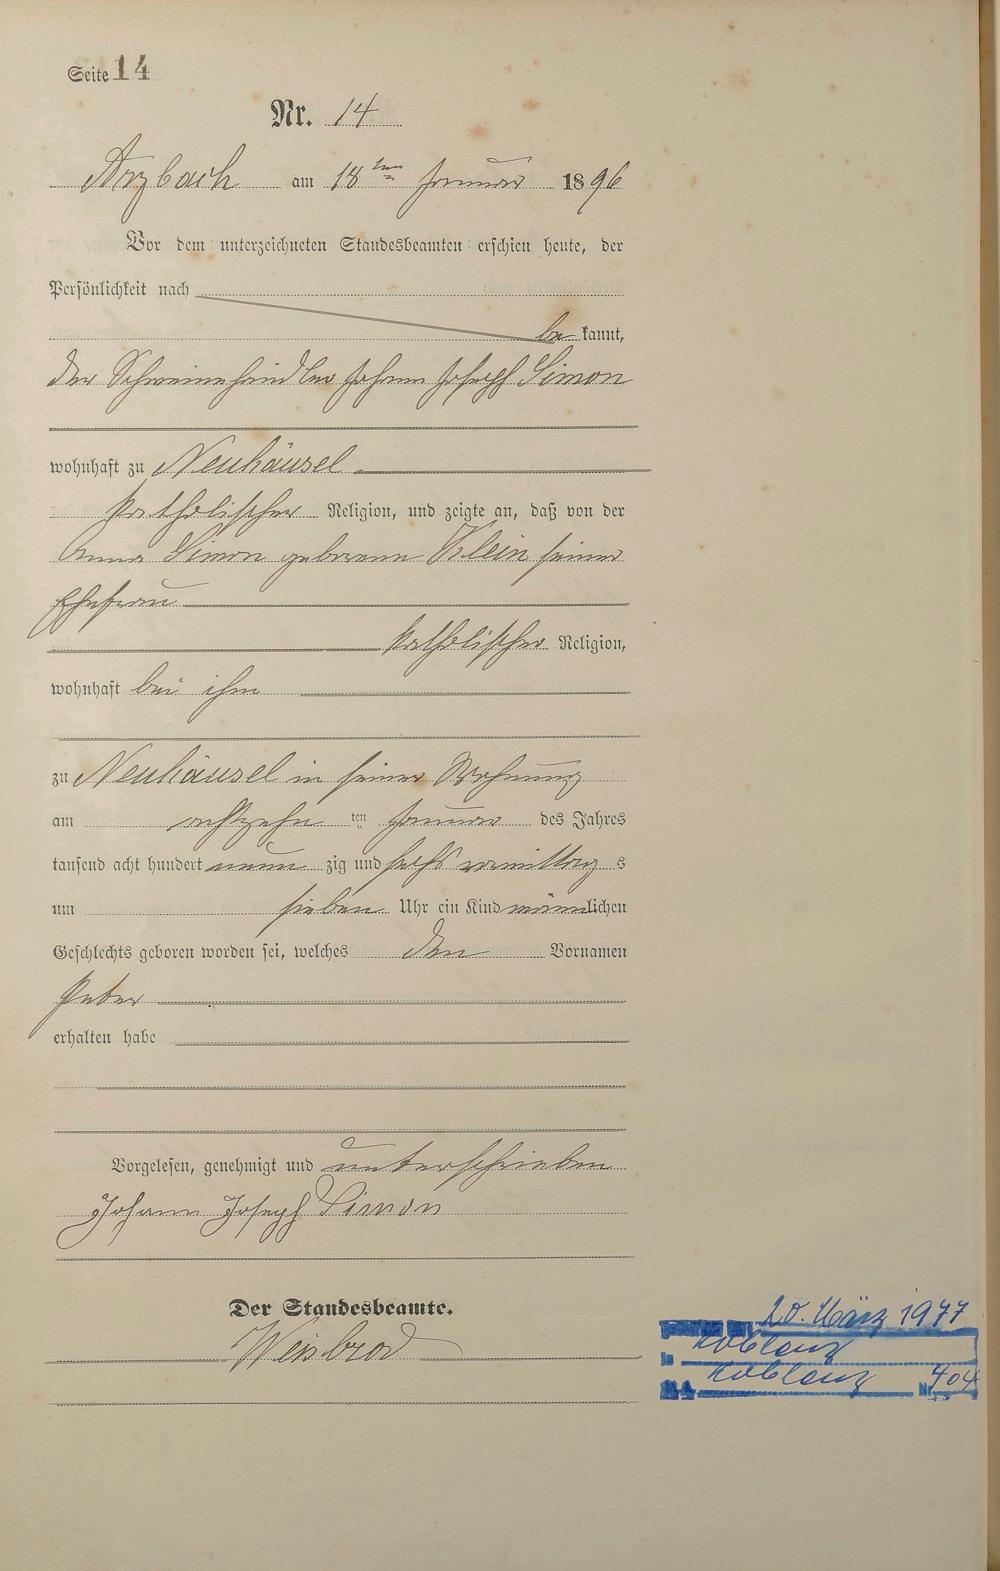 Seite 14
Nr. 14
Arzbach am 18ten Januar 1896
Vor dem unterzeichneten Standesbeamten erschien heute, der
Persönlichkeit nach
bekannt,
der Schweinehändler Johann Joseph Simon
wohnhaft zu Neuhäusel
katholischer Religion, und zeigte an, daß von der
Anna Simon geborenen Klein seiner
Ehefrau
katholischer Religion,
wohnhaft bei ihm
zu Neuhäusel in seiner Wohnung
am achtzehnten Januar des Jahres
tausend acht hundert neunzig und sechs vormittags
um sieben Uhr ein Kind männlichen
Geschlechts geboren worden sei, welches den Vornamen
Peter
erhalten habe
Vorgelesen, genehmigt und unterschrieben
Johann Joseph Simon
Der Standesbeamte.
Weisbrod
20. März 1977
in Koblenz
Koblenz Nr. 404